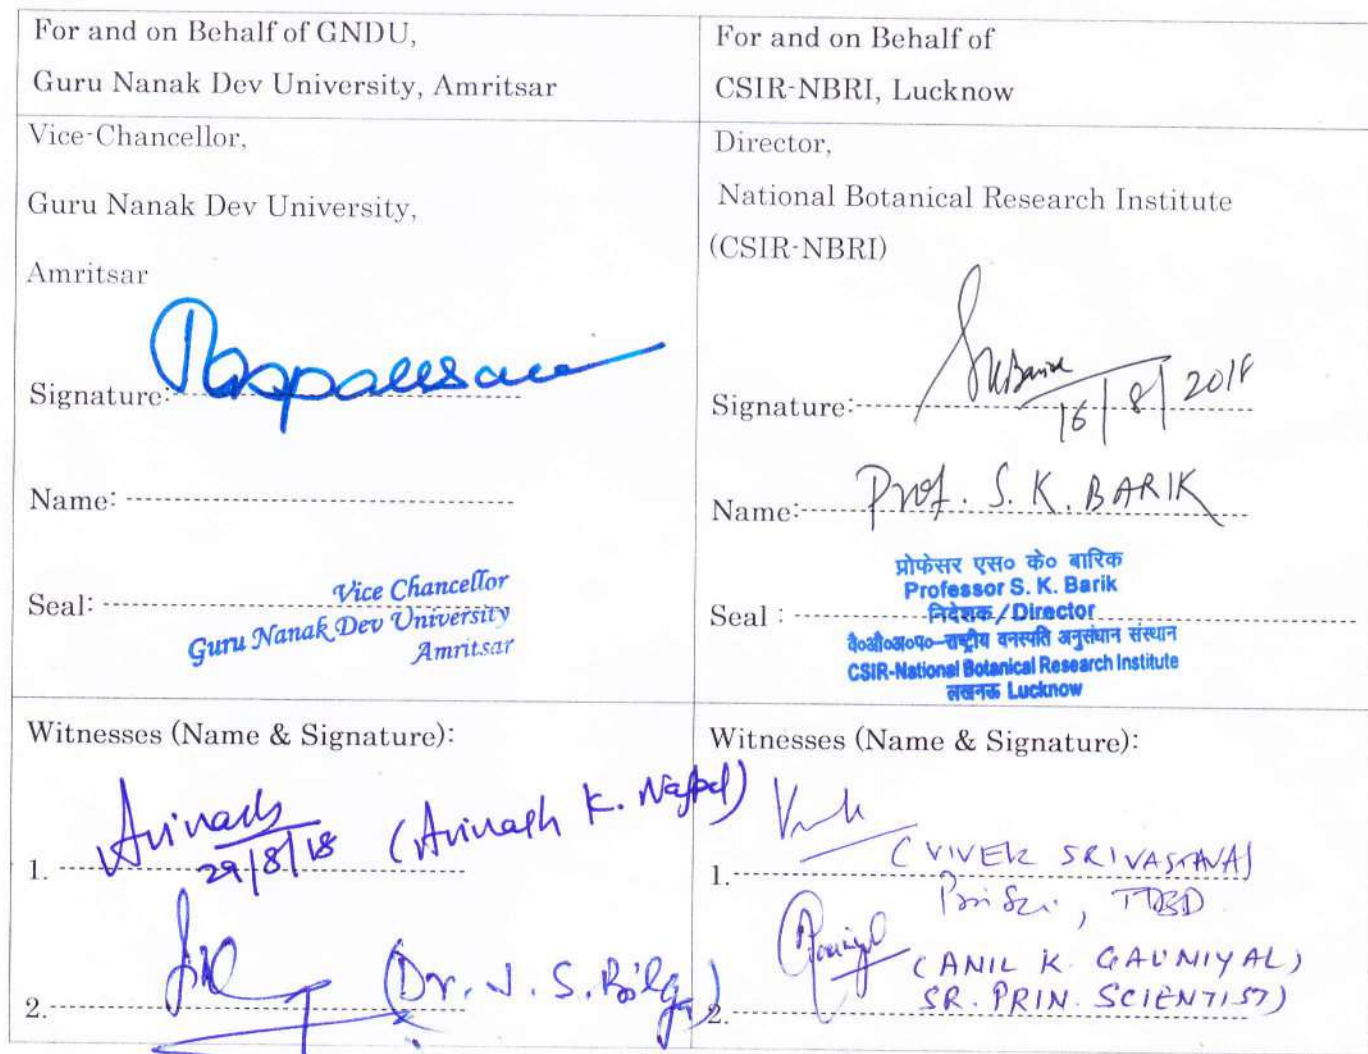 For and on Behalf of GNDU,
Guru Nanak Dev University, Amritsar
For and on Behalf of
CSIR-NBRI, Lucknow
Vice-Chancellor,
Guru Nanak Dev University,
Amritsar
Signature:
Name:
Seal:
Vice Chancellor
Guru Nanak Dev University
Amritsar
Director,
National Botanical Research Institute
(CSIR-NBRI)
Signature:
SKBarik
16/8/2018
Name: Prof. S. K. BARIK
Seal :
प्रोफेसर एस० के० बारिक
Professor S. K. Barik
निदेशक/Director
वै०औ०अ०प०-राष्ट्रीय वनस्पति अनुसंधान संस्थान
CSIR-National Botanical Research Institute
लखनऊ Lucknow
Witnesses (Name & Signature):
1. Avinash (Avinash K. Nagpal)
29/8/18
2. (Dr. J. S. Bilga)
Witnesses (Name & Signature):
1. (VIVEK SRIVASTAVA)
TDBD
2. (ANIL K. GAUNIYAL)
SR. PRIN. SCIENTIST)